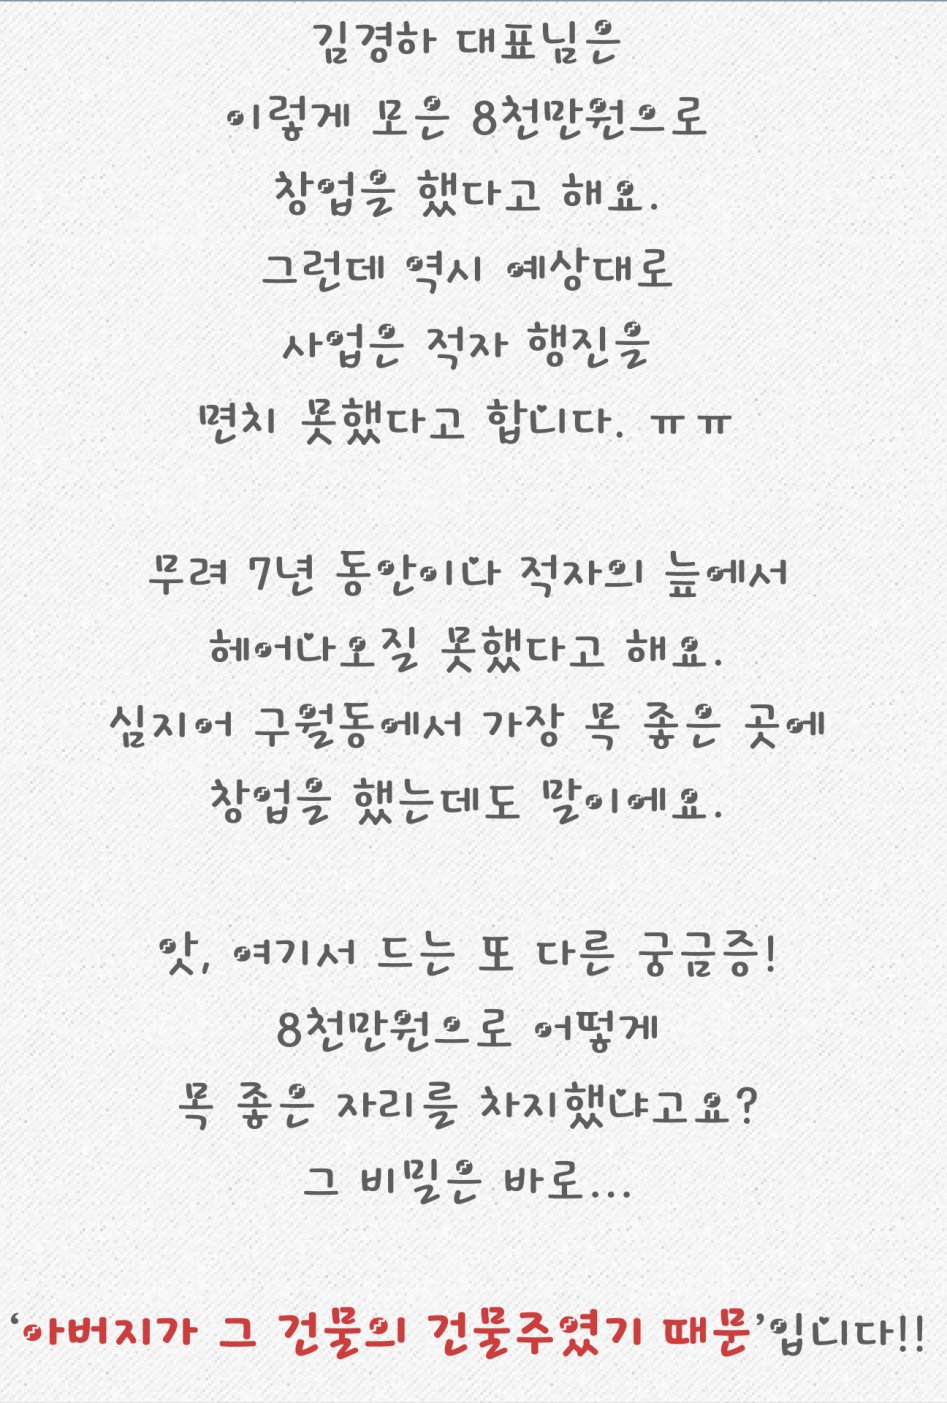 김경하 대표님은
이렇게 모은 8천만원으로
창업을 했다고 해요.
그런데 역시 예상대로
사업은 적자 행진을
면치 못했다고 합니다. ㅠㅠ
무려 7년 동안이나 적자의 늪에서
헤어나오질 못했다고 해요.
심지어 구월동에서 가장 목 좋은 곳에
창업을 했는데도 말이에요.
앗, 여기서 드는 또 다른 궁금증!
8천만원으로 어떻게
목 좋은 자리를 차지했냐고요?
그 비밀은 바로...
‘아버지가 그 건물의 건물주였기 때문’입니다!!